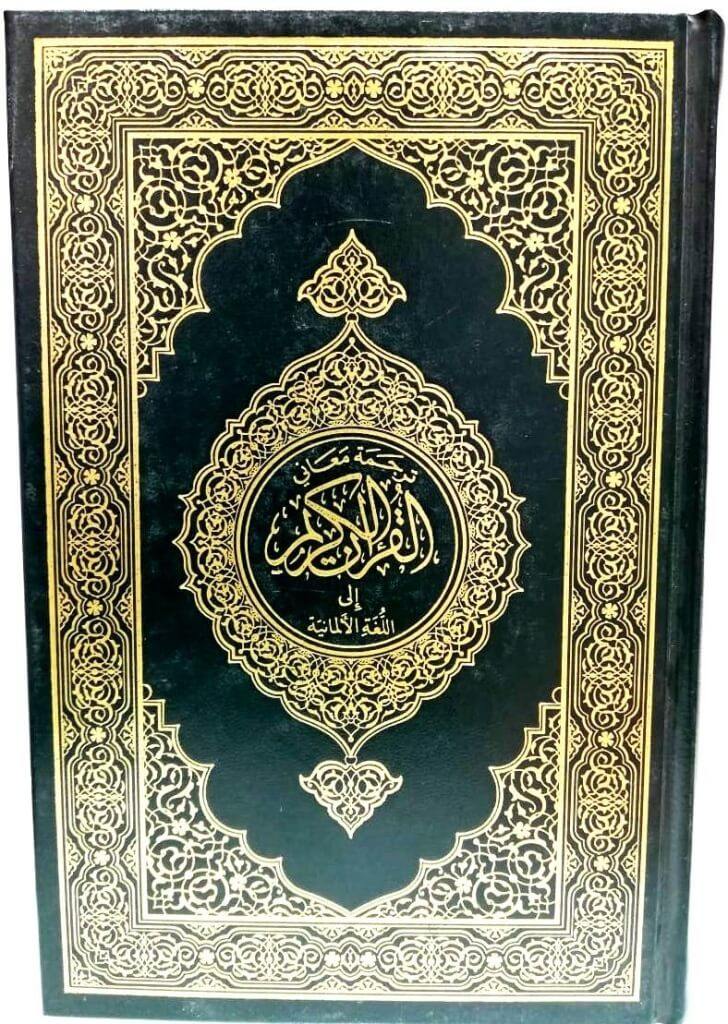 ترجمة معاني
القرآن الكريم
إلى
اللغة الألمانية